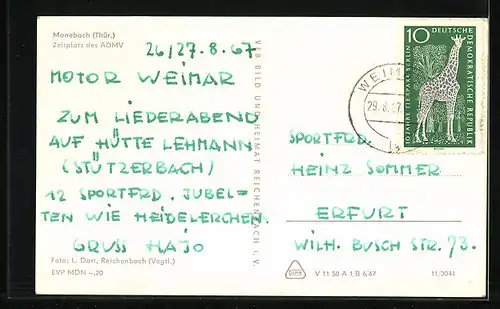 Manebach (Thür.)
Zeltplatz des ADMV
26/27.8.67
MOTOR WEIMAR
ZUM LIEDERABEND
AUF HÜTTE LEHMANN
(STÜTZERBACH)
12 SPORTFRD. JUBEL-
TEN WIE HEIDELERCHEN.
GRUSS HAJO
Foto: L. Dorr, Reichenbach (Vogtl.)
EVP MDN -,20
VEB BILD UND HEIMAT REICHENBACH i. V.
WEIM
29.8.67
10 DEUTSCHE
DEMOKRATISCHE REPUBLIK
10 JAHRE TIERPARK BERLIN
SPORTFRD.
HEINZ SOMMER
ERFURT
WILH. BUSCH STR. 73.
V 11 50 A 1/B 6/67
11/3041